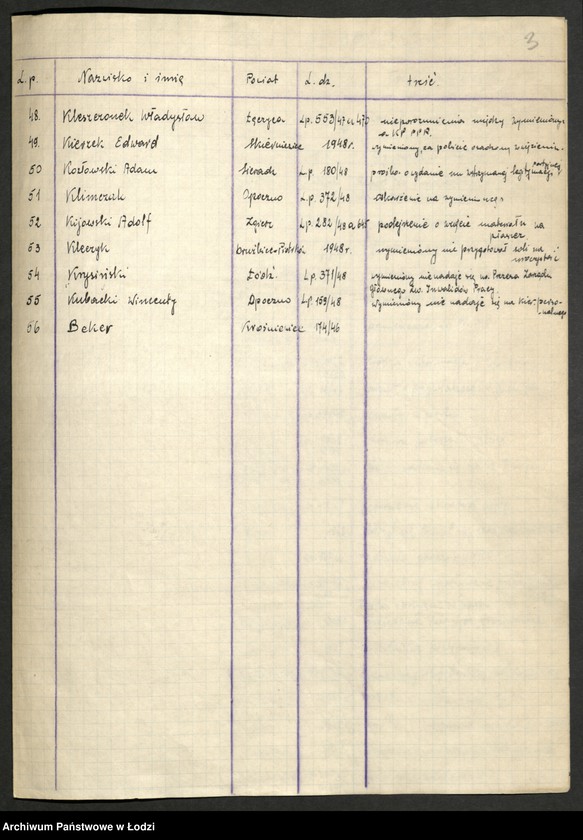 3
L.p. Nazwisko i imię Powiat L.dz. treść
48. Kleszczonek Władysław Łęczyca Lp. 553/47 nieporozumienia między wymienionym
a KP PPR.
49. Kierzek Edward Skierniewice 1948r. wymieniony za pobicie osadzony
50 Kozłowski Adam Sieradz Lp. 180/48 prośba o wydanie mu
partyjnej
51 Klimczak Opoczno Lp. 372/48 oskarżenie na wymienionego
52 Kijowski Adolf Zgierz Lp. 282/48 podejrzenie o wzięcie materiału na
płaszcz
53 Kleczyk 1948r. wymieniony nie przygotował soli na
uroczystość
54 Krysiński Łódź Lp. 371/48 wymieniony nie nadaje się na Prezesa Zarządu
Głównego Zw. Inwalidów Pracy.
55 Kubacki Wincenty Opoczno Lp. 159/48 wymieniony nie nadaje się na kier. perso-
nalnego
56 Beker Krośniewice 174/46
Archiwum Państwowe w Łodzi